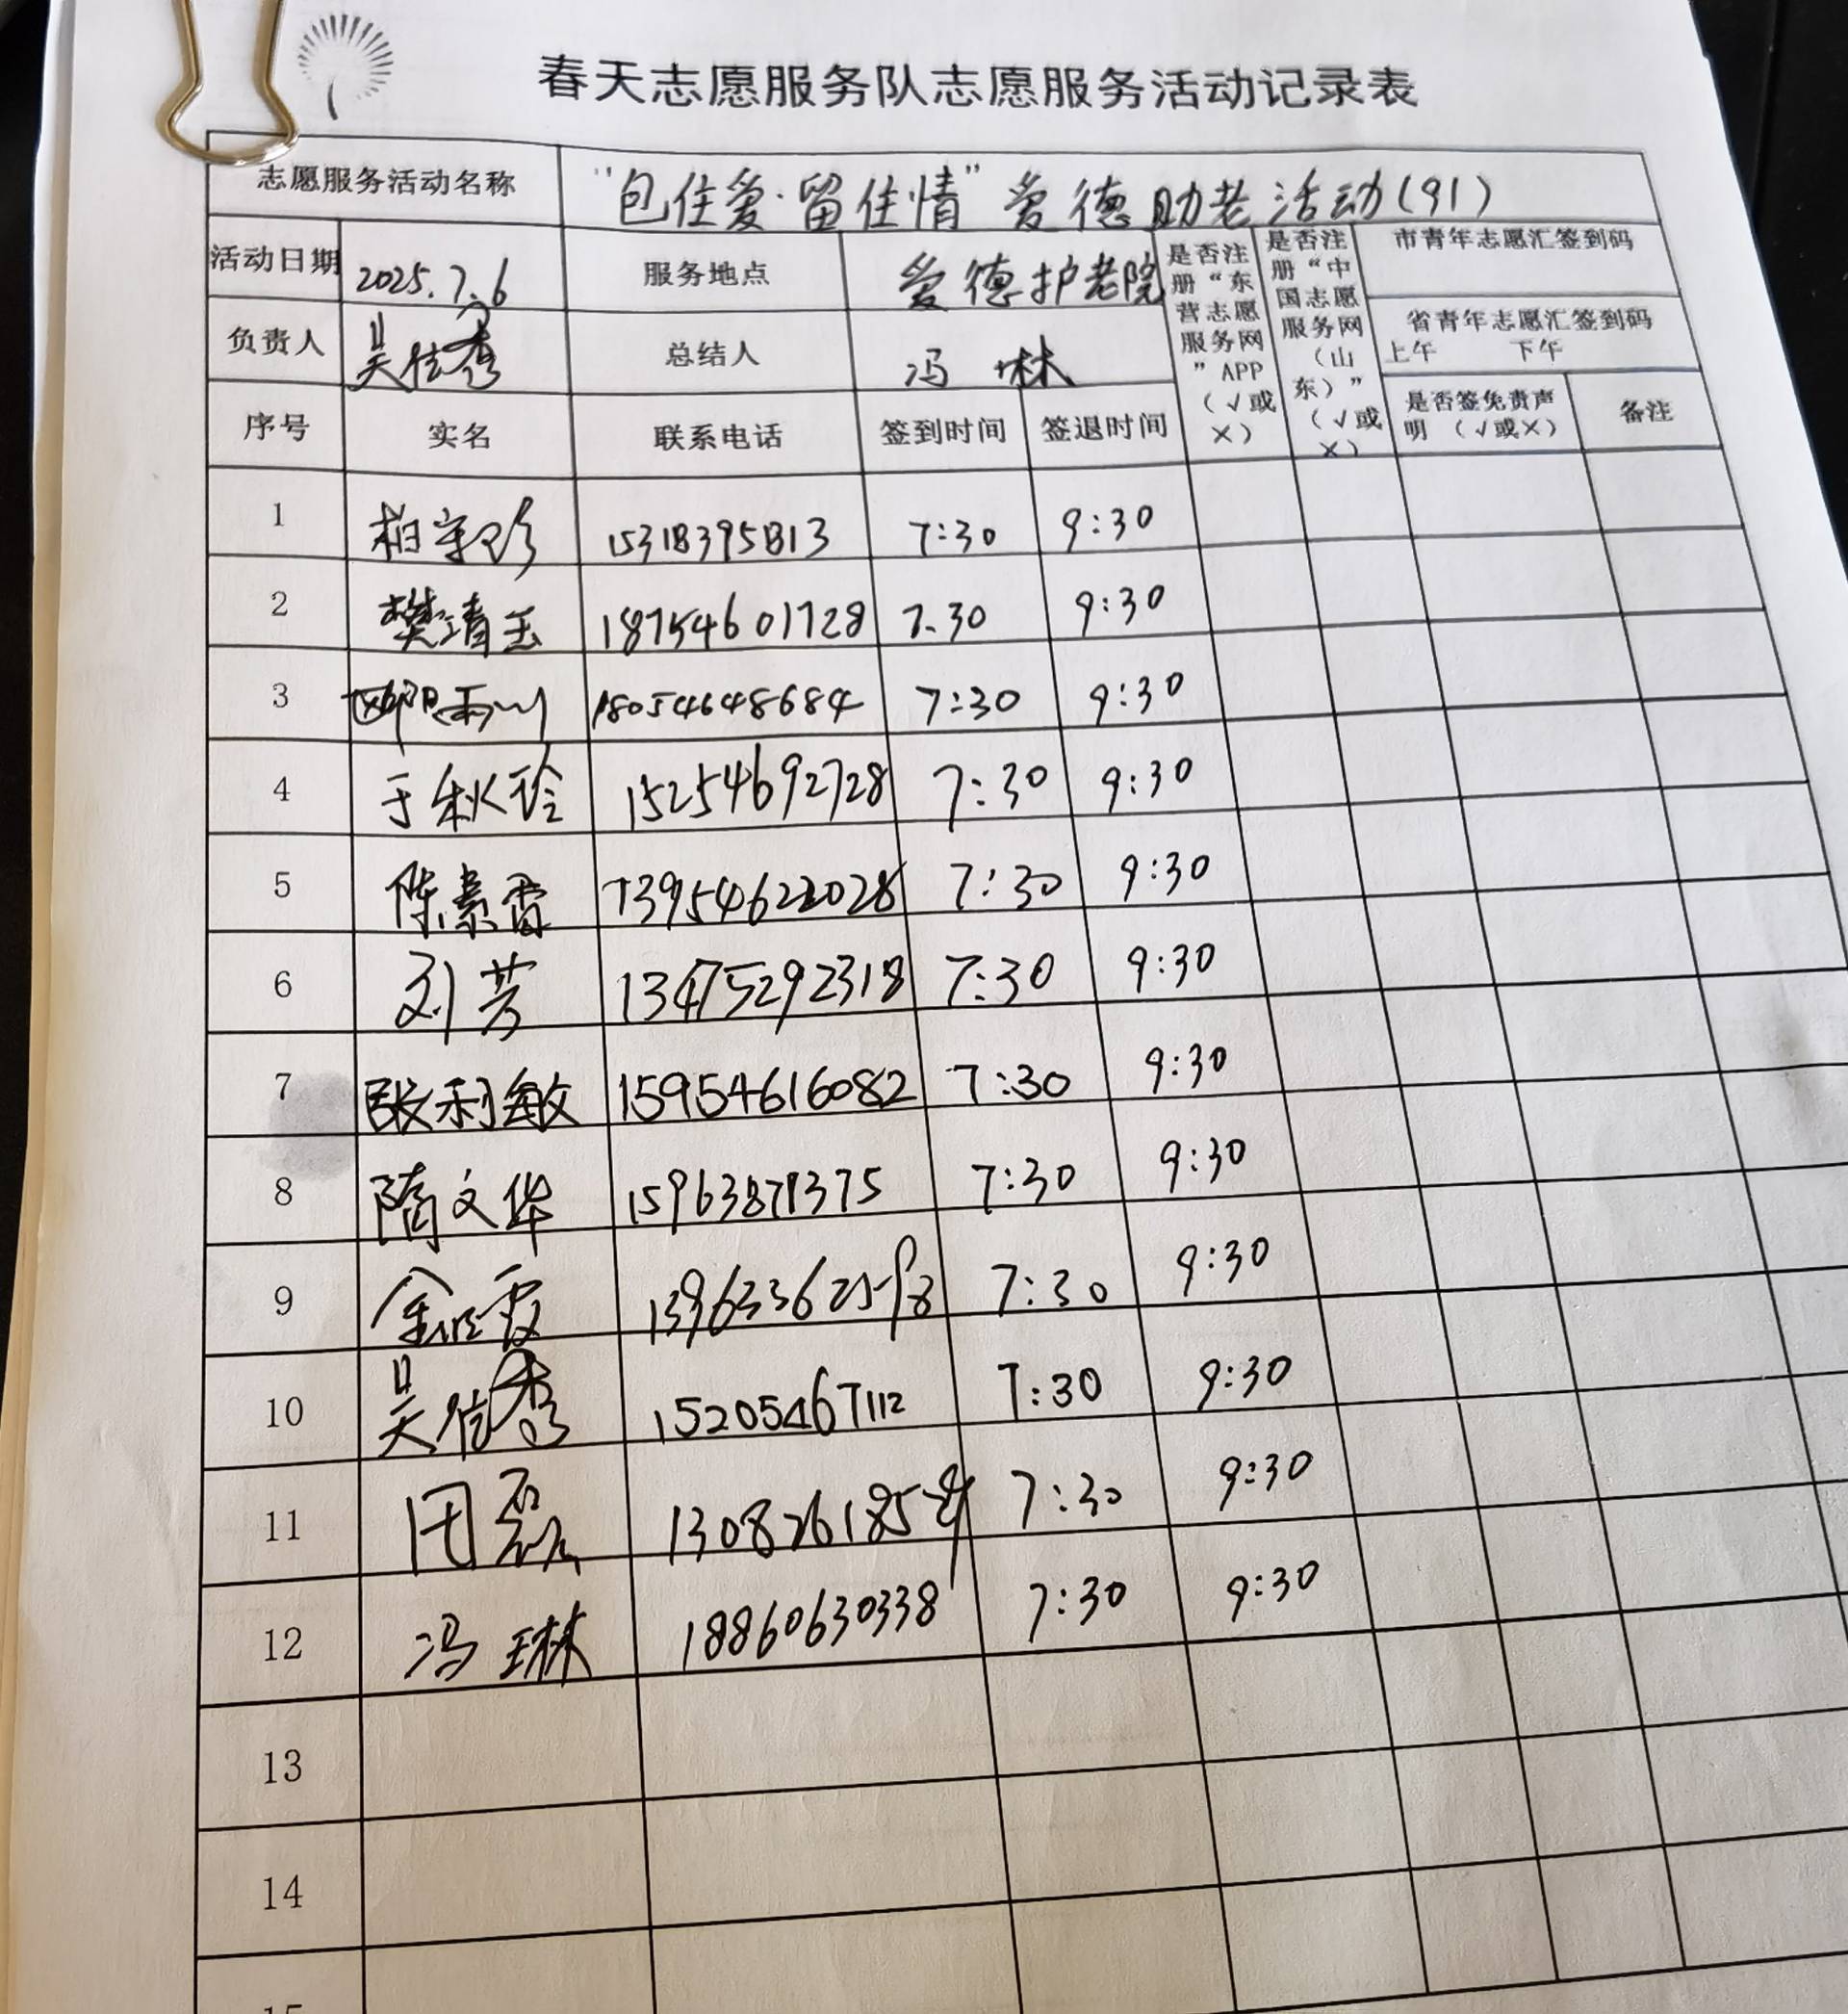 春天志愿服务队志愿服务活动记录表
志愿服务活动名称 "包住爱·留住情"爱德助老活动(91)
活动日期 2025.7.6 服务地点 爱德护老院 是否注册“东营志愿服务网”APP（√或×） 是否注册“中国志愿服务网（山东）”（√或×） 市青年志愿汇签到码
负责人 吴秀 总结人 冯琳 省青年志愿汇签到码
上午 下午
序号 实名 联系电话 签到时间 签退时间 是否签免责声明（√或×） 备注
1 柏 15318395813 7:30 9:30
2 樊清玉 18754601728 7.30 9:30
3 18054648684 7:30 9:30
4 于秋玲 15254692728 7:30 9:30
5 陈素雷 13954622028 7:30 9:30
6 刘芳 13475292318 7:30 9:30
7 张利敏 15954616082 7:30 9:30
8 隋文华 15963871375 7:30 9:30
9 金霞 7:30 9:30
10 吴秀 15205467112 7:30 9:30
11 田磊 7:30 9:30
12 冯琳 18860630338 7:30 9:30
13
14
15